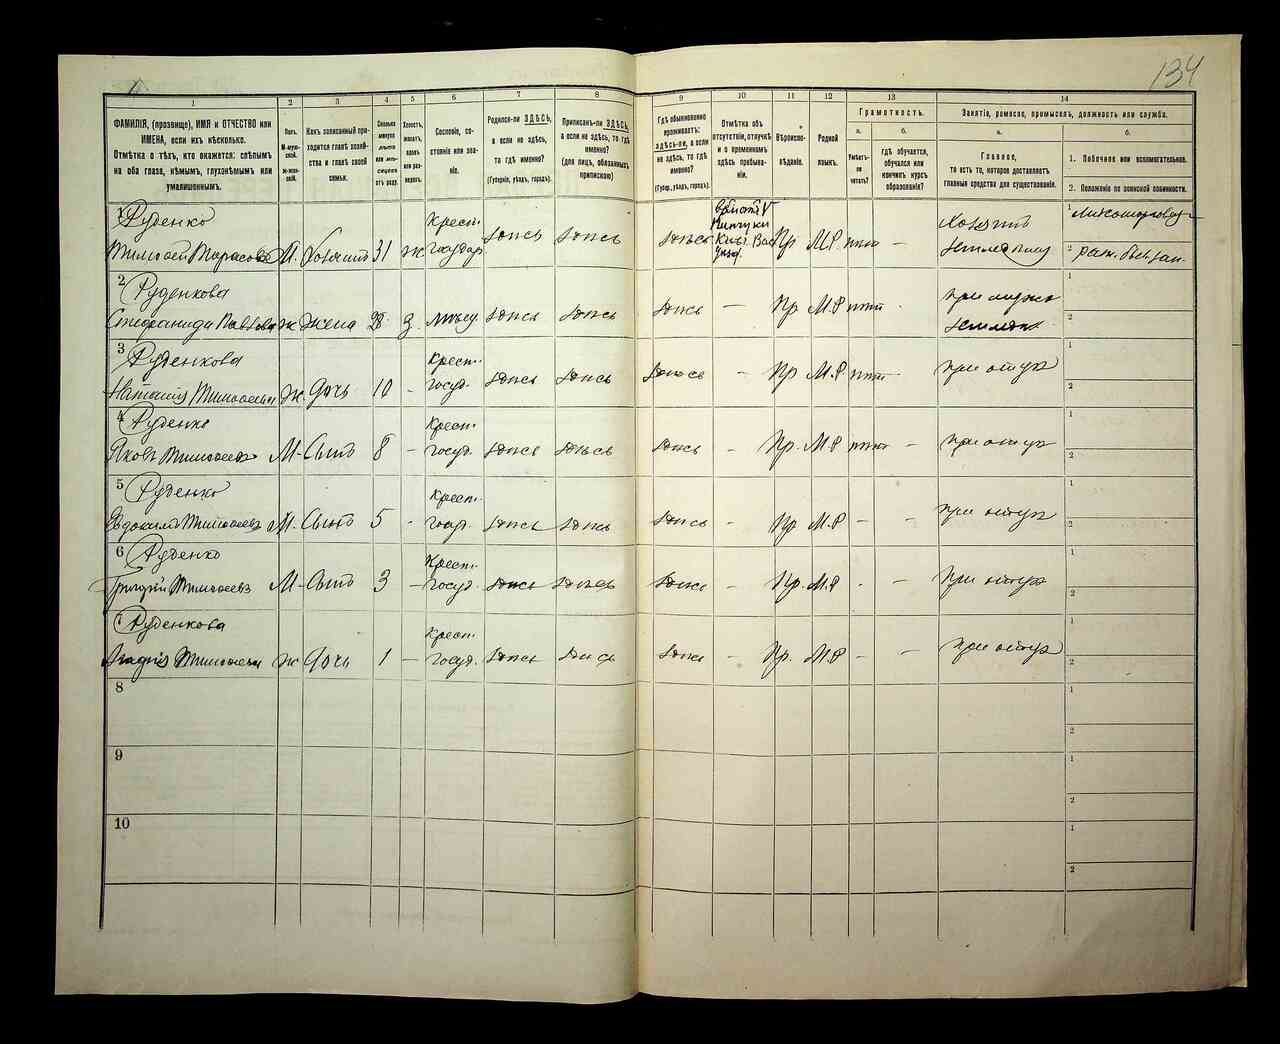 134
1
ФАМИЛІЯ, (прозвище), ИМЯ и ОТЧЕСТВО или ИМЕНА, если ихъ нѣсколько.
Отмѣтка о тѣхъ, кто окажется: слѣпымъ на оба глаза, нѣмымъ, глухонѣмымъ или умалишоннымъ.
2
Полъ.
М-мужской.
Ж-женскій.
3
Какъ записанный приходится главѣ хозяйства и главѣ своей семьи.
4
Сколько минуло лѣтъ или мѣсяцевъ отъ роду.
5
Холостъ, женатъ, вдовъ или разведенъ.
6
Сословіе, состояніе или званіе.
7
Родился-ли ЗДѢСЬ,
а если не здѣсь,
то гдѣ именно?
(Губернія, уѣздъ, городъ).
8
Приписанъ-ли ЗДѢСЬ,
а если не здѣсь, то гдѣ именно?
(для лицъ, обязанныхъ припискою)
9
Гдѣ обыкновенно проживаетъ:
здѣсь-ли, а если не здѣсь, то гдѣ именно?
(Губер., уѣздъ, городъ).
10
Отмѣтка объ отсутствіи, отлучкѣ и о временномъ здѣсь пребываніи.
11
Вѣроисповѣданіе.
12
Родной языкъ.
13
Грамотность.
а.
Умѣетъ-ли читать?
б.
гдѣ обучается, обучался или кончилъ курсъ образованія?
14
Занятіе, ремесло, промыселъ, должность или служба.
а.
Главное,
то есть то, которое доставляетъ главныя средства для существованія.
б.
1. Побочное или вспомогательное.
2. Положеніе по воинской повинности.
1 Руденко
Тимофей Тарасовъ М. Хозяинъ 31 ж Крест. государ. здѣсь здѣсь здѣсь Пр М.Р нѣтъ - Хозяинъ
1
2
2 Руденкова
Стефанида ж жена 28 з. здѣсь здѣсь здѣсь - Пр М.Р нѣтъ - при мужѣ
1
2
3 Руденкова
Наталія Тимофеева ж. дочь 10 - Крест. госуд. здѣсь здѣсь здѣсь - Пр М.Р нѣтъ - при отцѣ
1
2
4 Руденко
Яковъ Тимофеевъ М- Сынъ 8 - Крест. госуд. здѣсь здѣсь здѣсь - Пр. М.Р нѣтъ - при отцѣ
1
2
5 Руденко
Евдокимъ Тимофеевъ М. Сынъ 5 - Крест. госуд. здѣсь здѣсь здѣсь - Пр М.Р - - при отцѣ
1
2
6 Руденко
Григорій Тимофеевъ М- Сынъ 3 - Крест. госуд. здѣсь здѣсь здѣсь - Пр. М.Р - - при отцѣ
1
2
7 Руденкова
Тимофеева ж дочь 1 - Крест. госуд. здѣсь здѣсь здѣсь - Пр. М.Р - - при отцѣ
1
2
8
1
2
9
1
2
10
1
2